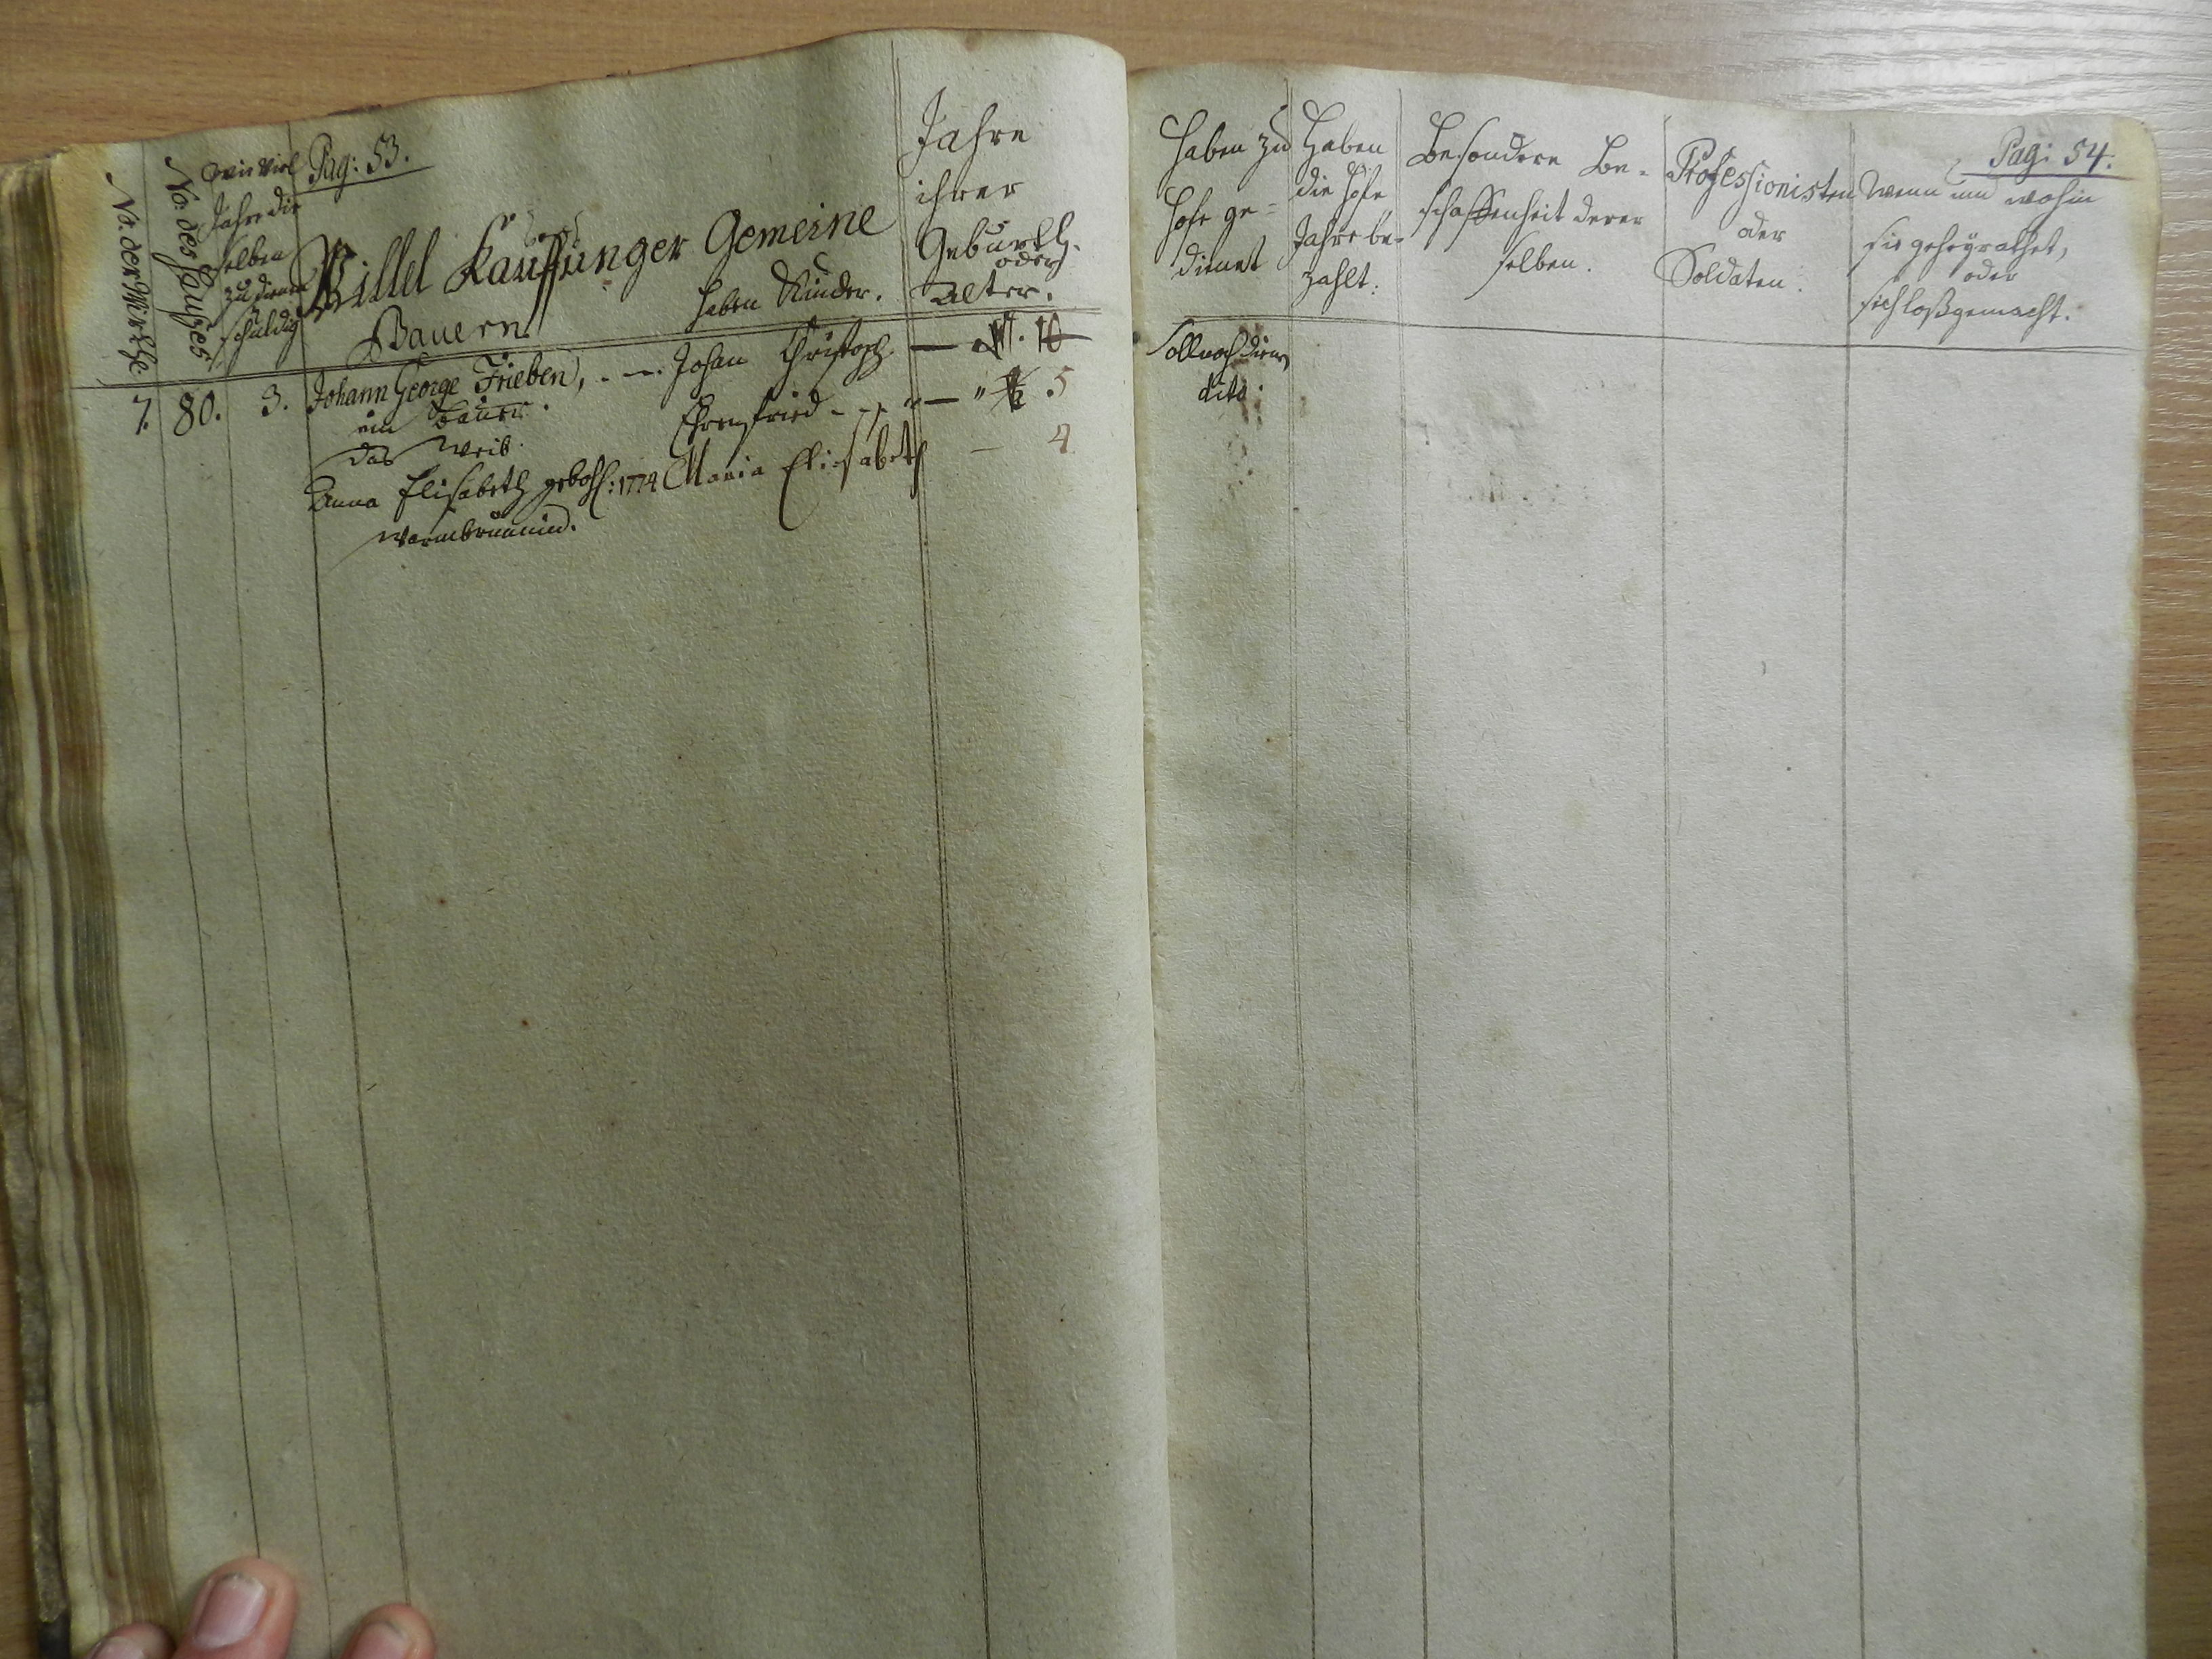 Pag: 53.
No. der Wirthe
No. des Hauses
Wie viel
Jahre die
selben
zu dienen
schuldig
Mittel Kauffunger Gemeine
Bauern
haben Kinder.
Jahre
ihrer
Geburth.
oder
Alter.
7. 80. 3. Johann George Frieben, - Johan Christoph - 10
ein Bauer. Ehrenfried - - " - " 5
das Weib.
Anna Elisabeth gebohr: 1774 Maria Elisabeth - 4
Warmbrunnin.
Pag: 54.
Haben zu
Hofe ge=
dienet
Haben
die Hofe
Jahre be=
zahlt:
Besondere Be-
schaffenheit derer
selben.
Professionisten
oder
Soldaten.
Wenn und wohin
sie geheÿrathet,
oder
sich loßgemacht.
Soll noch dienen
dito: